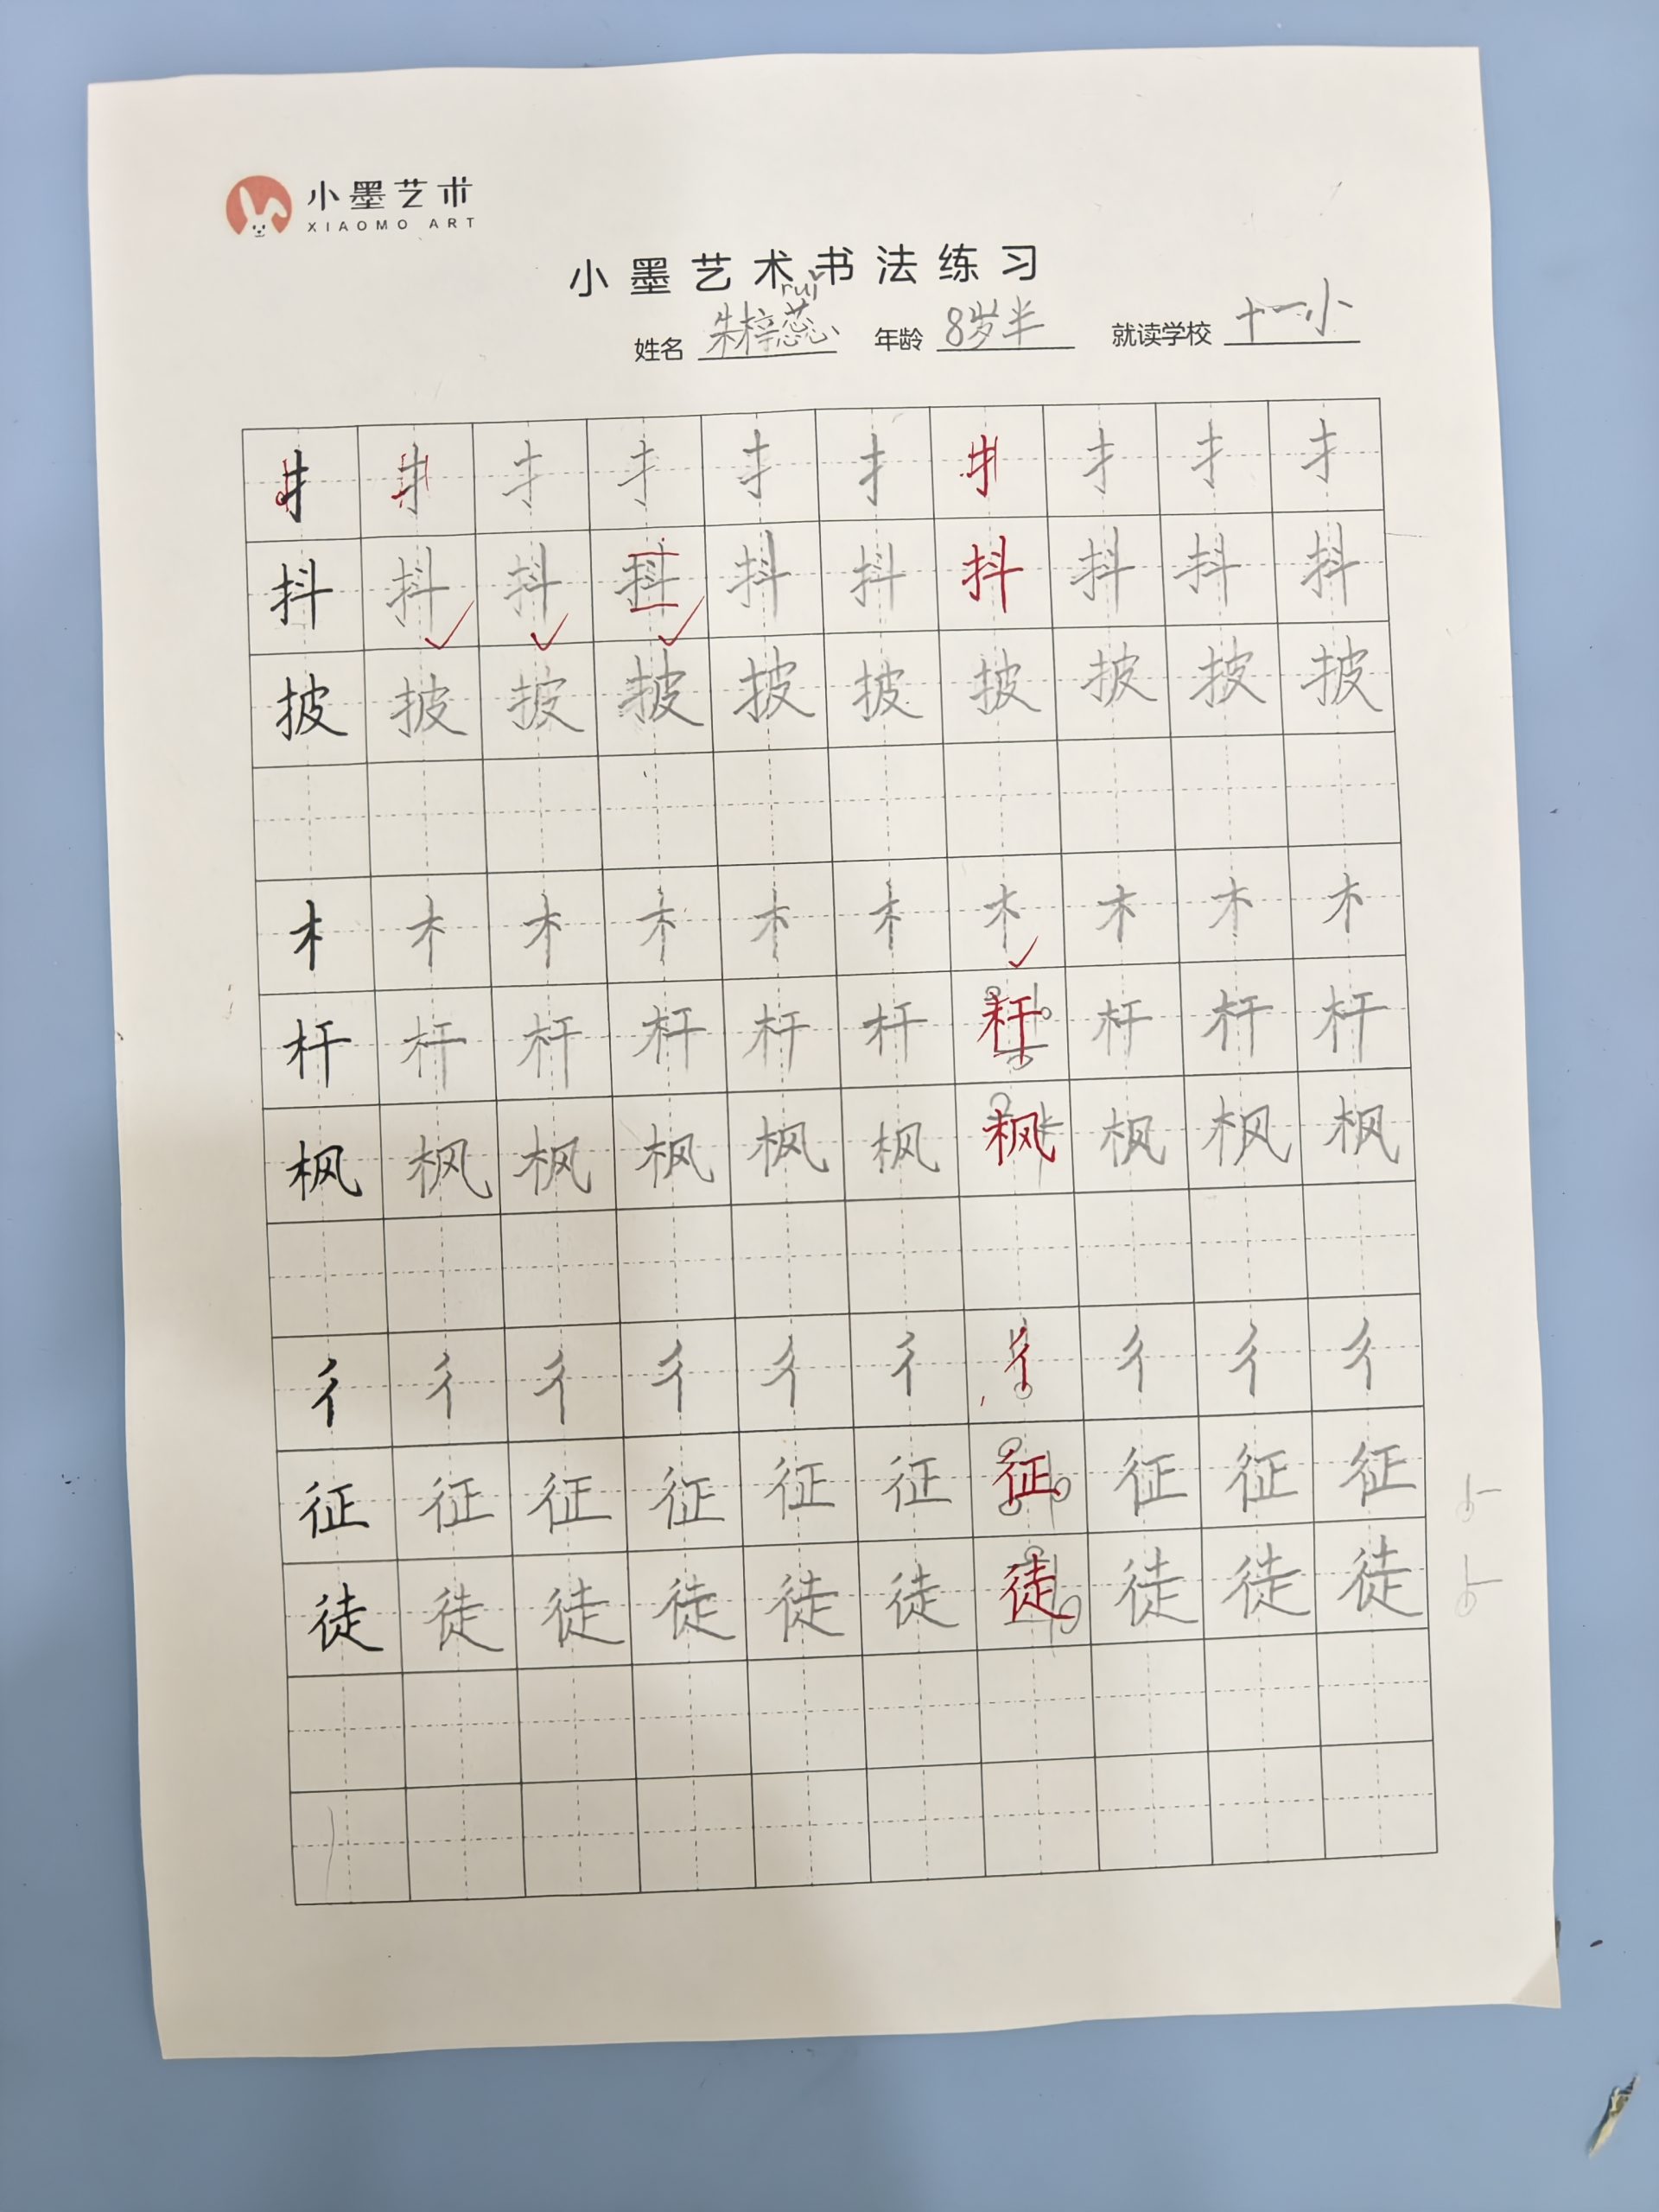 小墨艺术
XIAOMO ART
小墨艺术书法练习
ruǐ
姓名 朱梓蕊 年龄 8岁半 就读学校 十一小
扌 扌 扌 扌 扌 扌 扌 扌 扌 扌
抖 抖 抖 抖 抖 抖 抖 抖 抖 抖
披 披 披 披 披 披 披 披 披 披
木 木 木 木 木 木 木 木 木 木
杆 杆 杆 杆 杆 杆 杆 杆 杆 杆
枫 枫 枫 枫 枫 枫 枫 枫 枫 枫
彳 彳 彳 彳 彳 彳 彳 彳 彳 彳
征 征 征 征 征 征 征 征 征 征
徒 徒 徒 徒 徒 徒 徒 徒 徒 徒